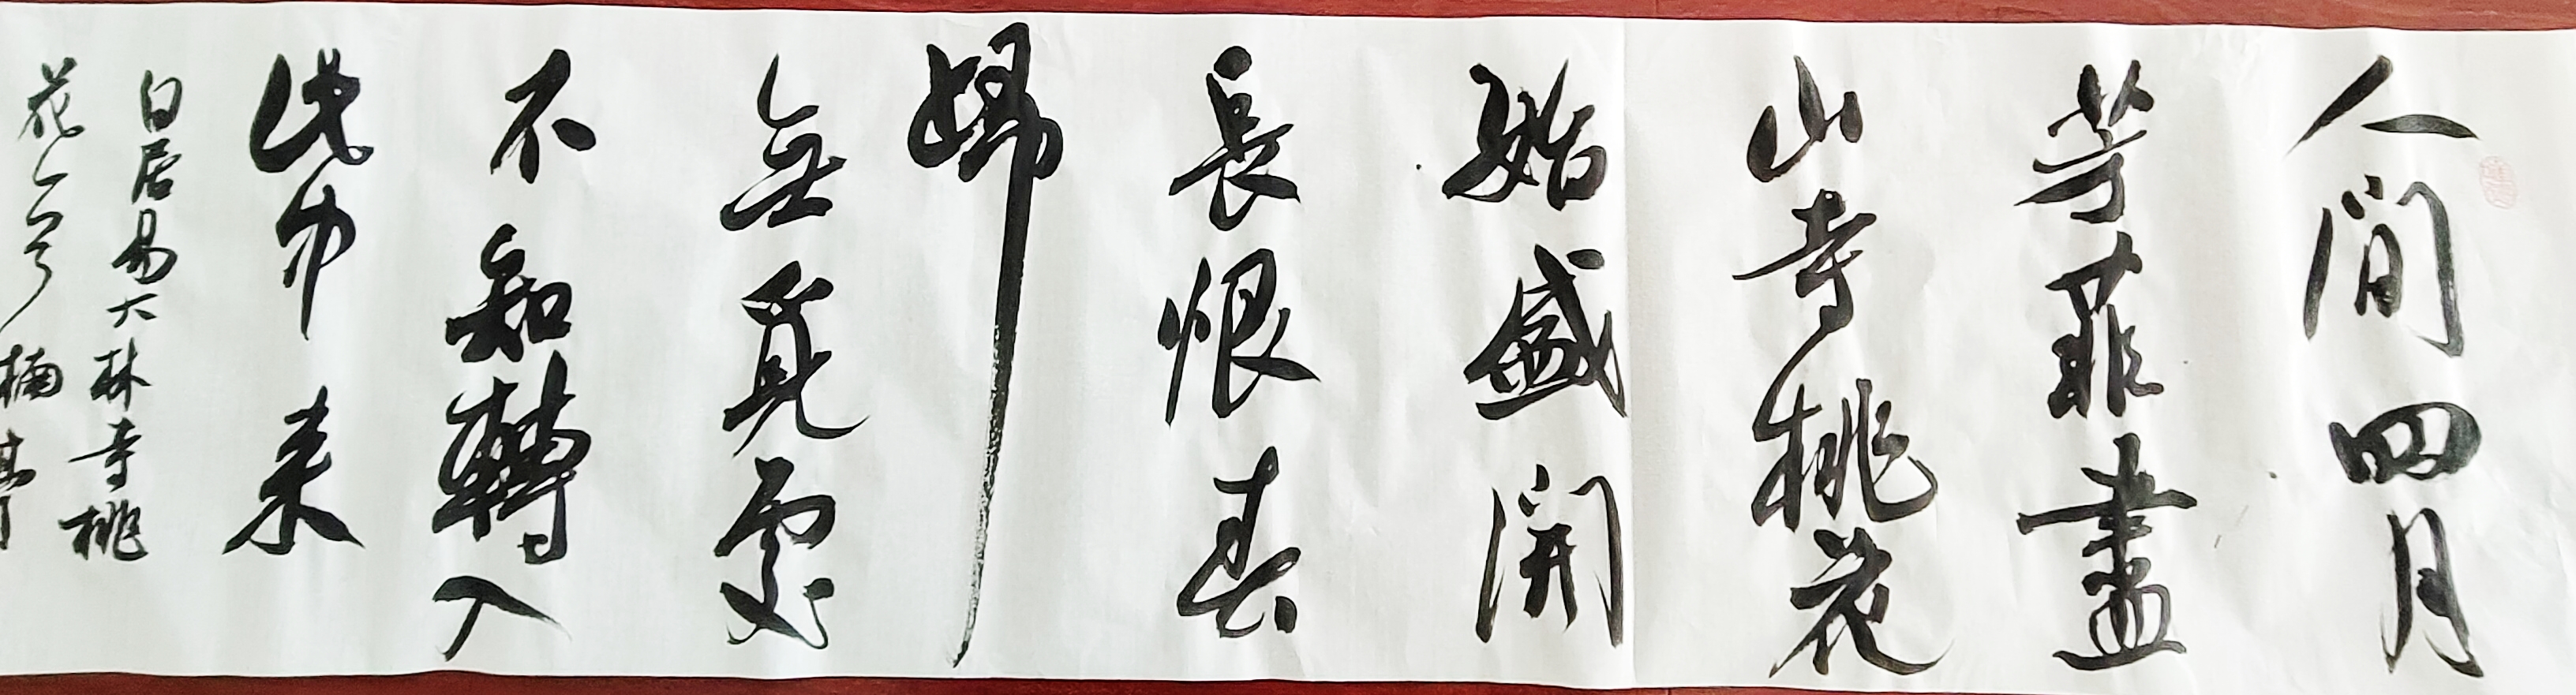 人間四月
芳菲盡
山寺桃花
始盛開
長恨春
歸
無覓處
不知轉入
此中来
白居易大林寺桃
花一首 楠